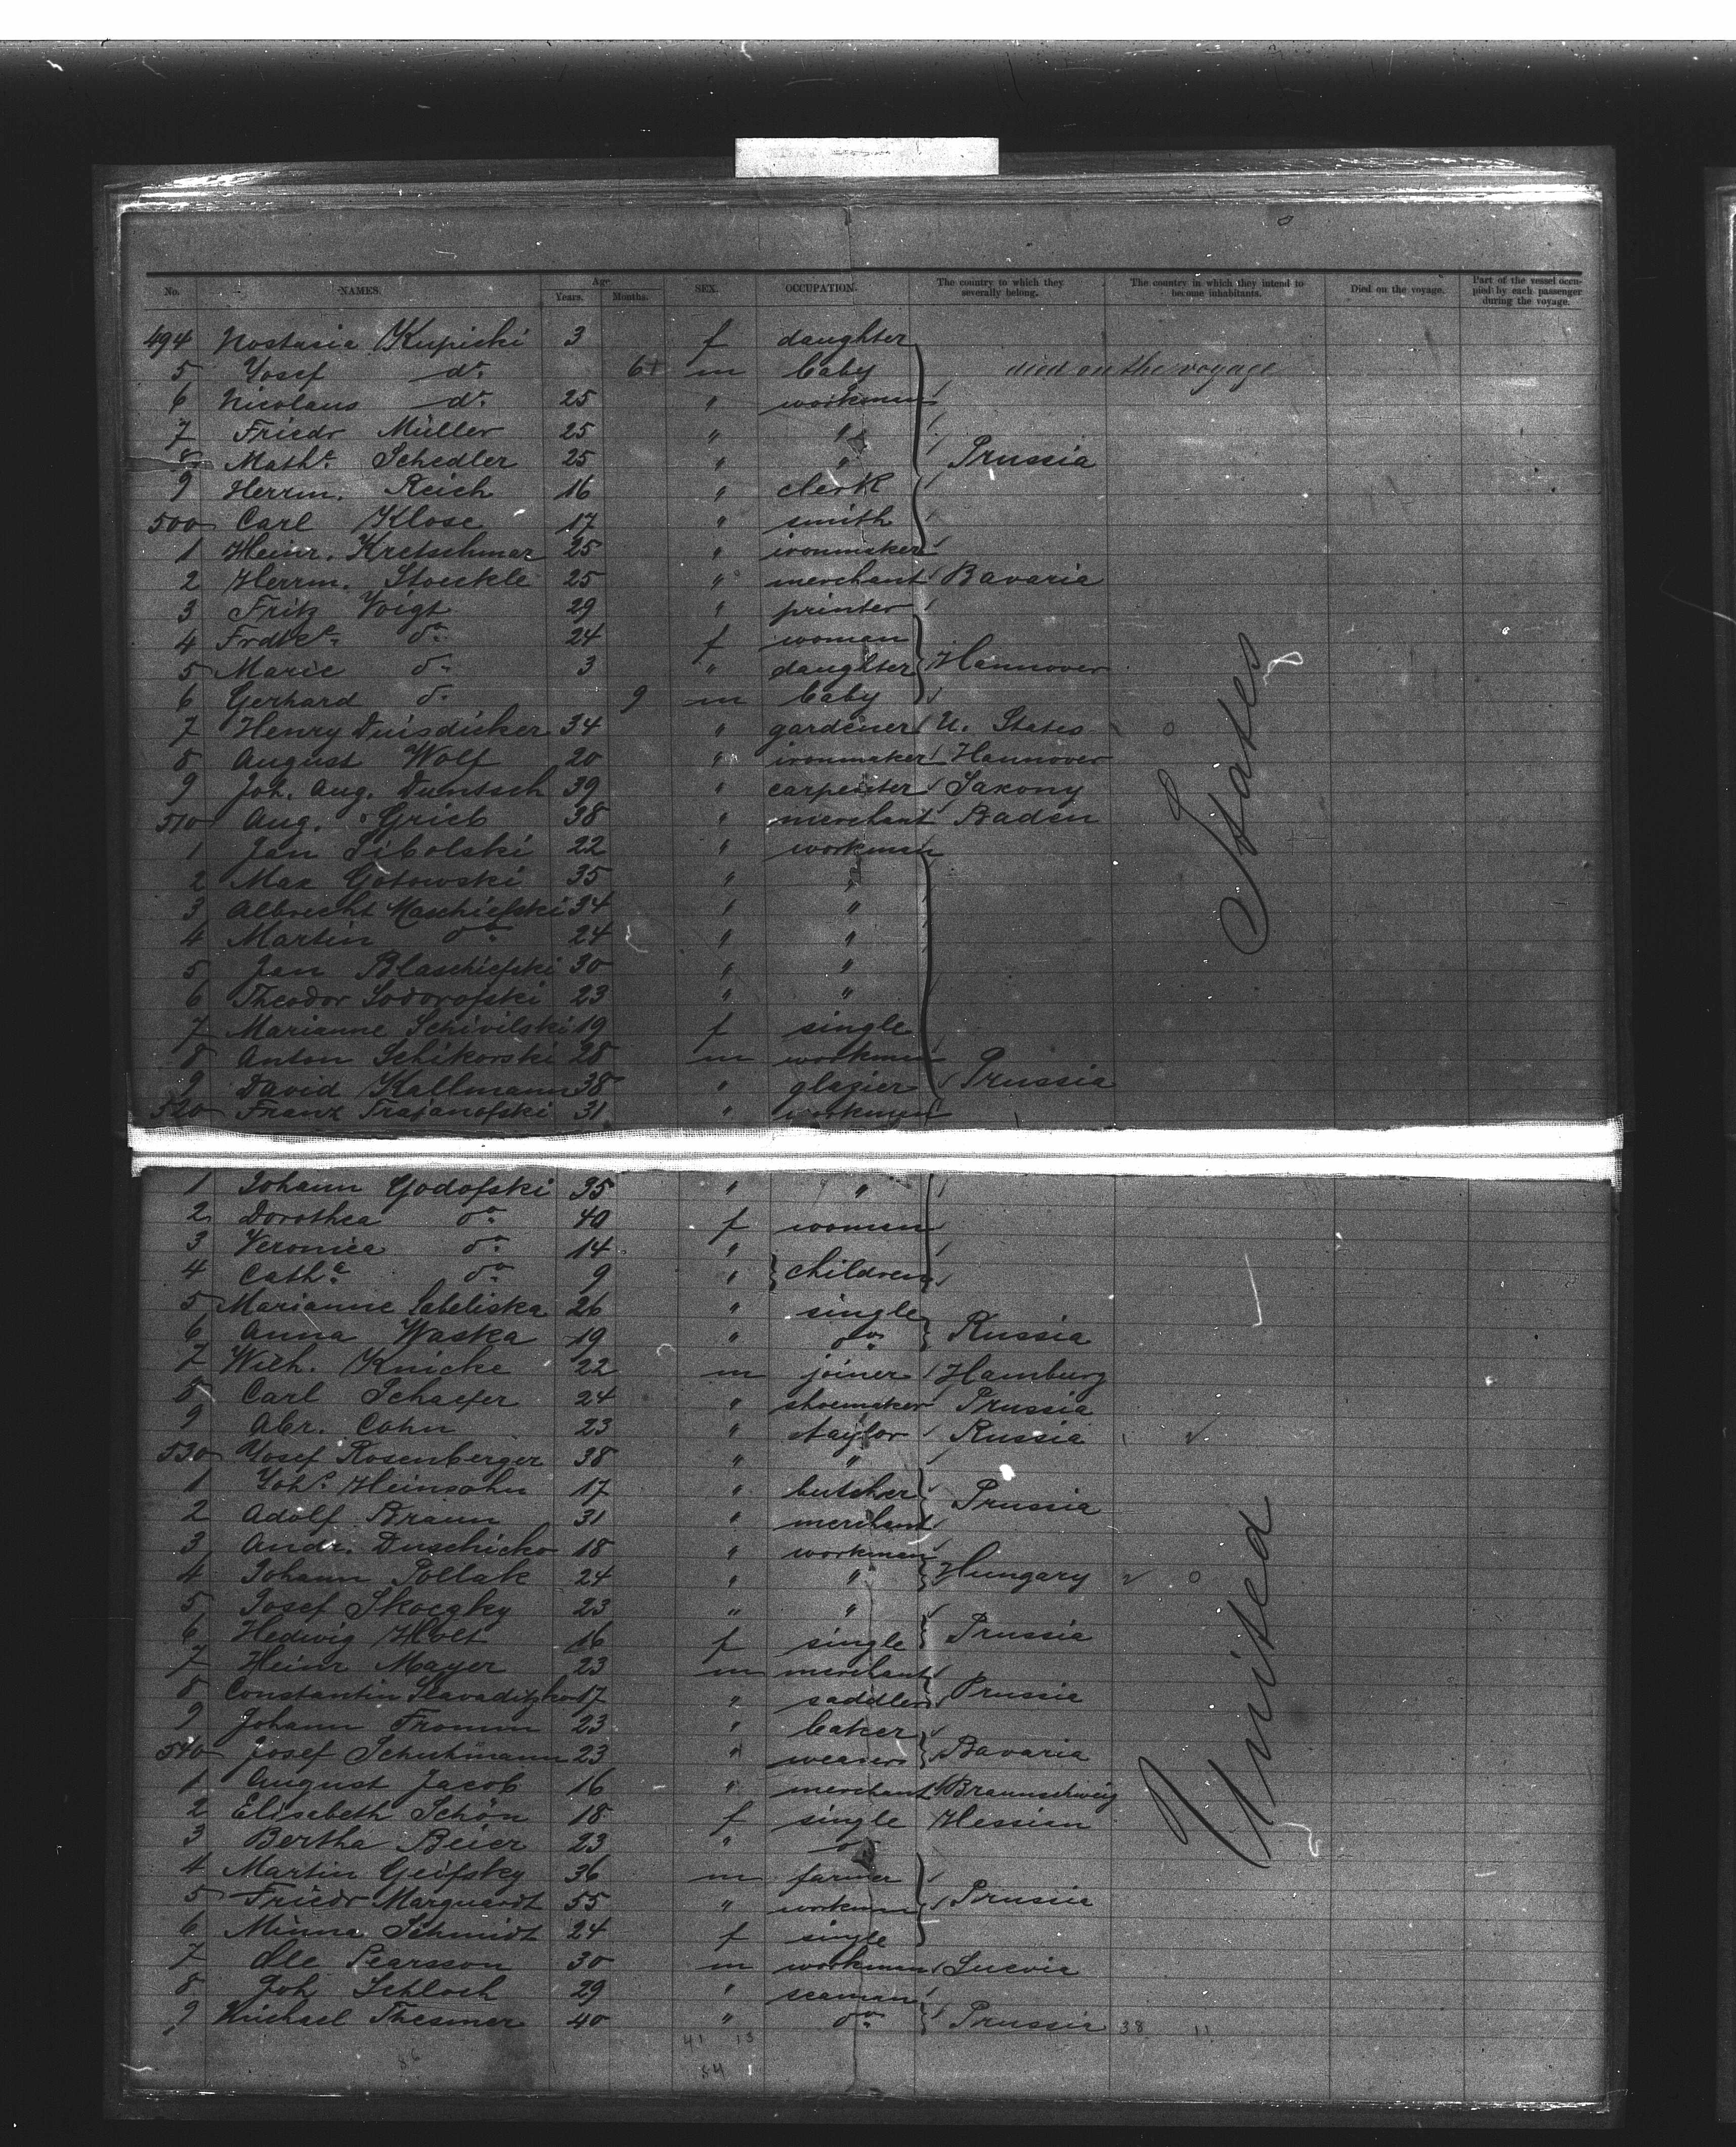 No. NAMES. Age Years. Months. SEX. OCCUPATION. The country to which they severally belong. The country in which they intend to become inhabitants. Died on the voyage. Part of the vessel occupied by each passenger during the voyage.
494 Nostasia Kupiski 3 f daughter
5 Josef do. 6 m baby died on the voyage
6 Nicolaus do. 25 " workman
7 Friedr Müller 25 " "
8 Mathe. Schedler 25 " " Prussia
9 Herrm. Reich 16 " clerk
500 Carl Klose 17 " smith
1 Heinr. Kretschmar 25 " ironmaker
2 Herrm. Stoeckle 25 " merchant Bavaria
3 Fritz Voigt 29 " printer
4 Frdke. do. 24 f woman
5 Marie do. 3 " daughter Hannover
6 Gerhard do. 9 m baby
7 Henry Duisdieker 34 " gardener U. States
8 August Wolf 20 " ironmaker Hannover
9 Joh. Aug. Duntsch 39 " carpenter Saxony
510 Aug. Grieb 38 " merchant Baden
1 Jan Sibolski 22 " workman
2 Max Gotowski 35 " "
3 Albrecht Maschiefski 34 " "
4 Martin do. 24 " "
5 Jan Blaschiefski 30 " "
6 Theodor Sodorofski 23 " "
7 Marianne Schivilski 19 f single
8 Anton Schikorski 28 m workman
9 David Kallmann 38 " glazier Prussia
520 Franz Trajanofski 31 " workman
States
1 Johann Godofski 35 " "
2 Dorothea do. 40 f woman
3 Veronica do. 14 "
4 Cathe. do. 9 " children
5 Marianne Sabeliska 26 " single
6 Anna Waska 19 " do. Russia
7 Wilh. Knicke 22 m joiner Hamburg
8 Carl Schaefer 24 " shoemaker Prussia
9 Abr. Cohn 23 " taylor Russia
530 Josef Rosenberger 38 " "
1 Johs. Heinsohn 17 " butcher Prussia
2 Adolf Braun 31 " merchant
3 Andr. Duschicko 18 " workman
4 Johann Pollak 24 " " Hungary
5 Josef Skoczky 23 " "
6 Hedwig Holt 16 f single Prussia
7 Heinr Mayer 23 m merchant
8 Constantin Slavaditzko 17 " saddler Prussia
9 Johann Fromm 23 " baker
540 Josef Schuhmann 23 " weaver Bavaria
1 August Jacob 16 " merchant Braunschweig
2 Elisabeth Schön 18 f single Hessian
3 Bertha Beier 23 " do
4 Martin Geifsky 36 m farmer
5 Friedr Marquardt 55 " workman Prussia
6 Minna Schmidt 24 f single
7 Ole Pearsson 30 m workman Suevia
8 Joh Schloch 29 " seaman
9 Michael Thesmer 40 " do. Prussia 38 11
United
41 13
86 84